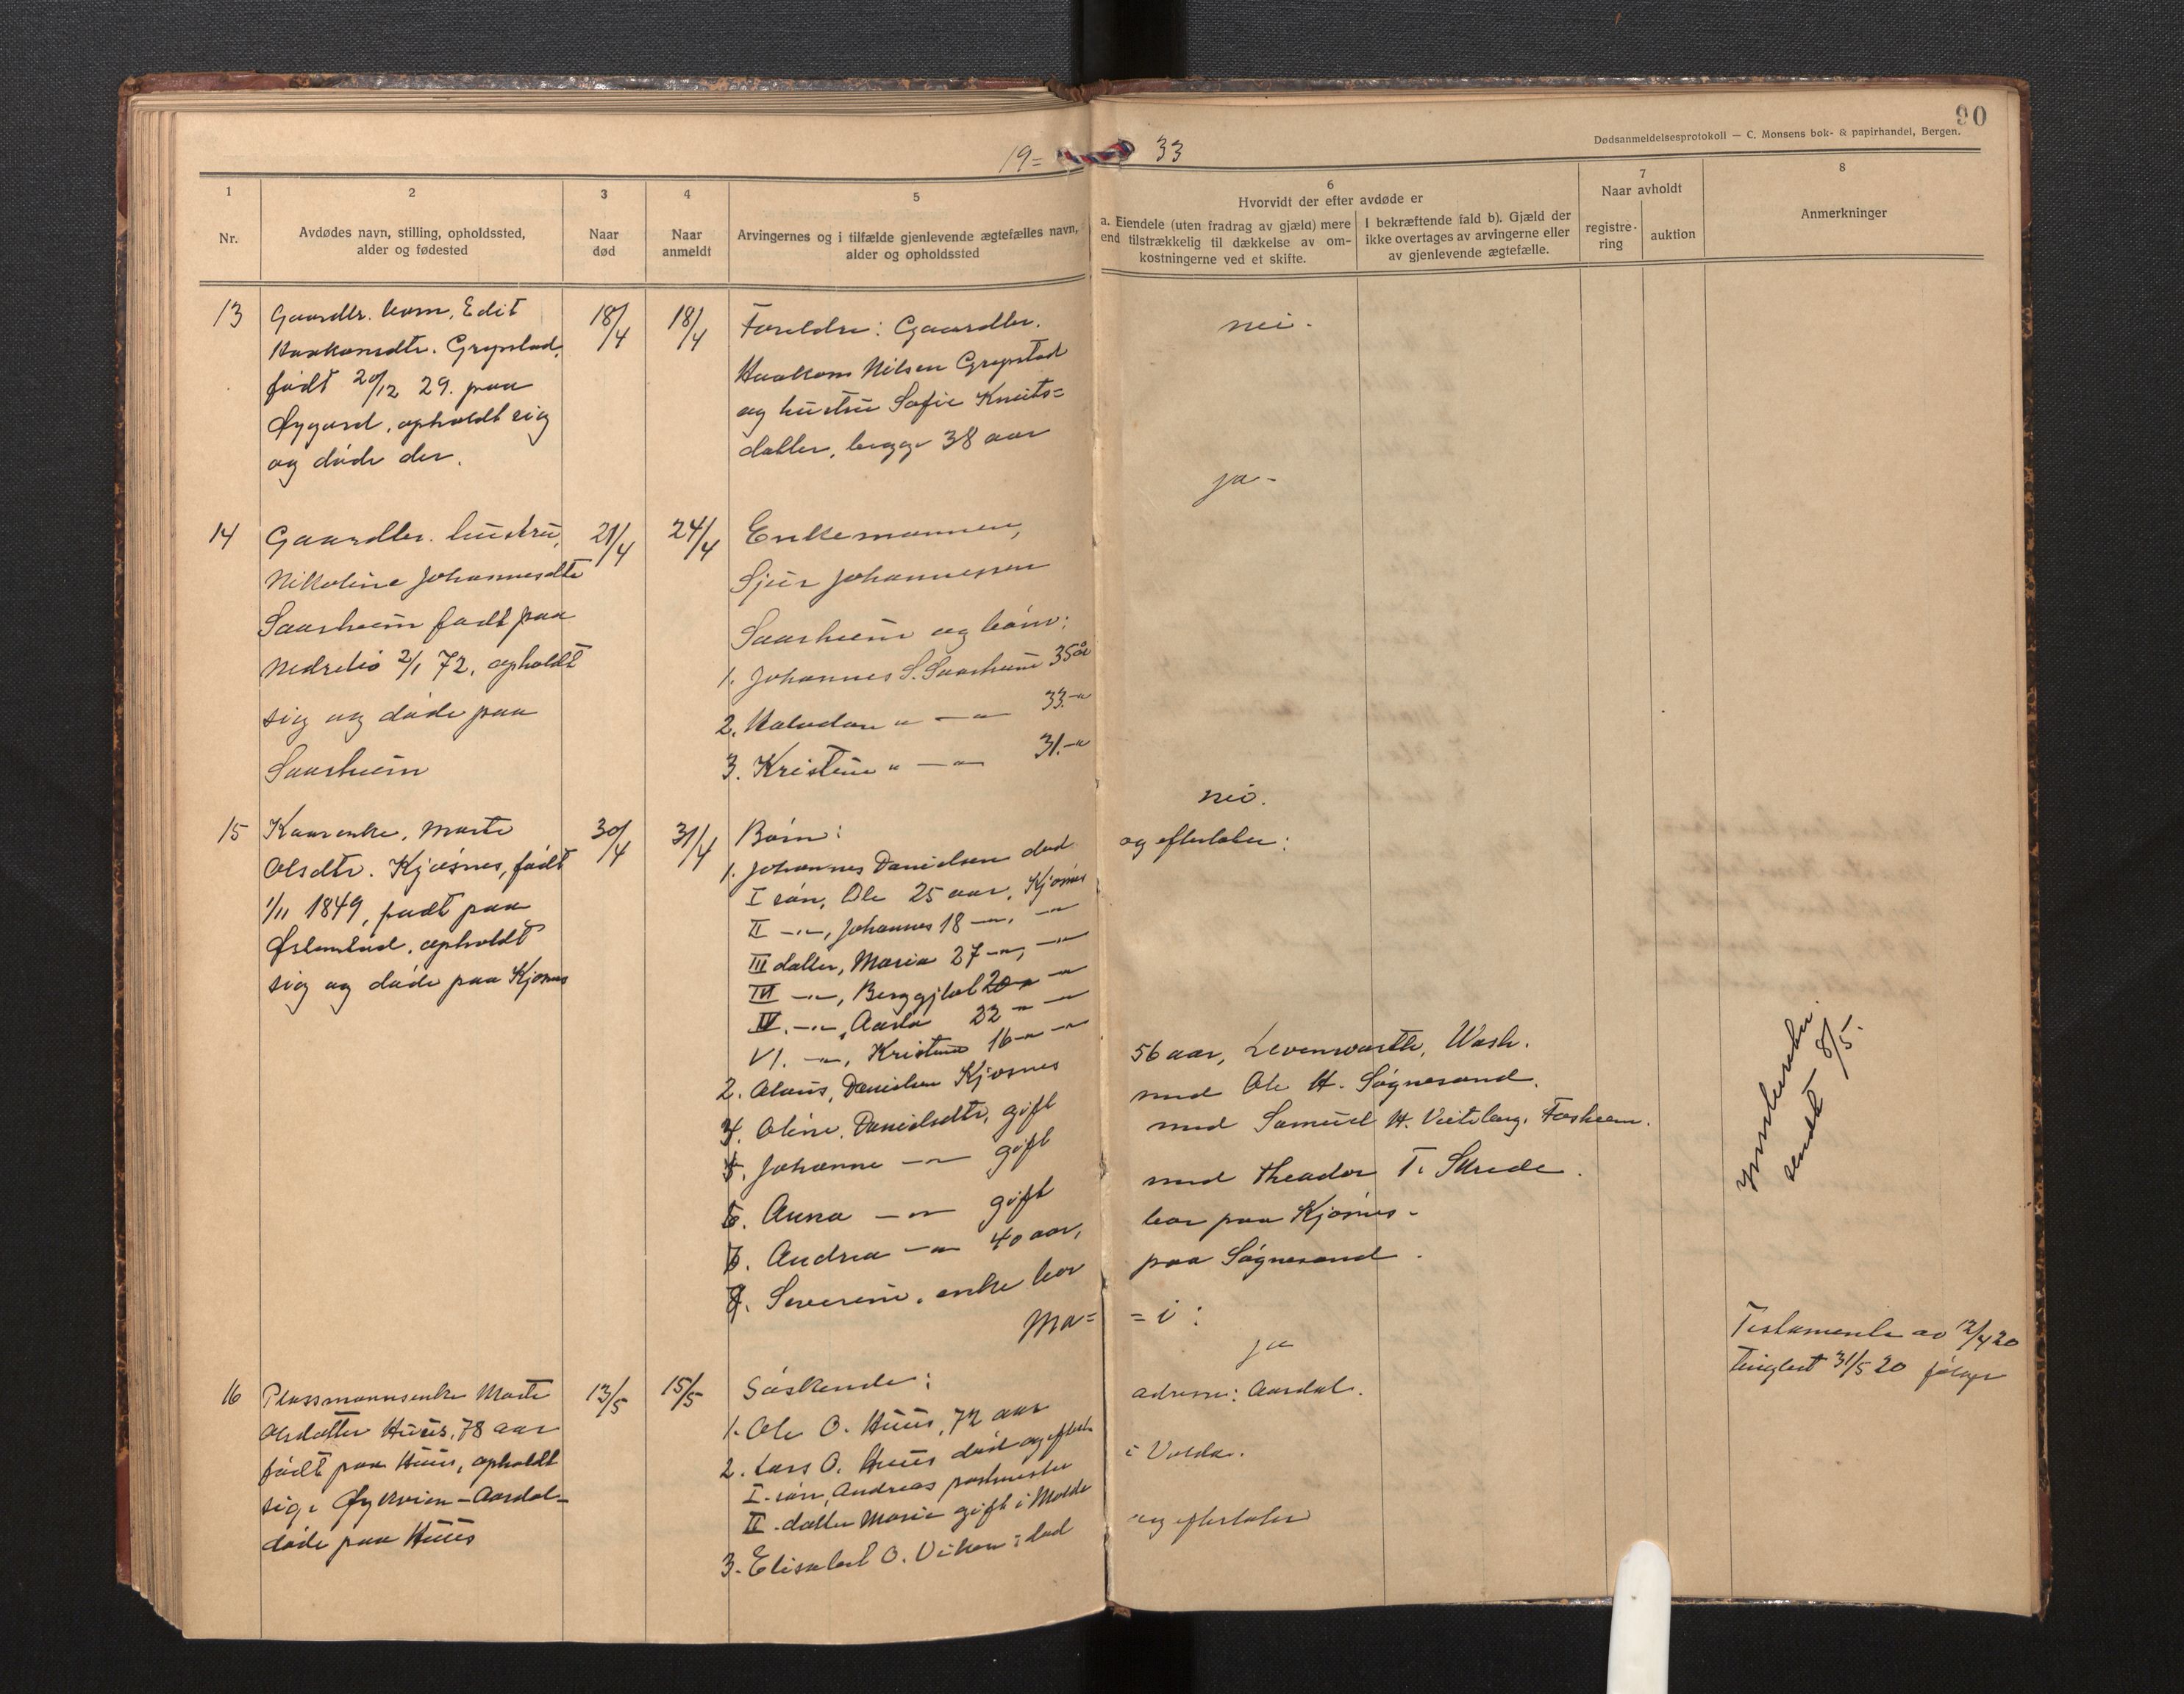 90
Dødsanmeldelsesprotokoll — C. Monsens bok- & papirhandel, Bergen.
19= 33
1
Nr.
2
Avdødes navn, stilling, opholdssted,
alder og fødested
3
Naar
død
4
Naar
anmeldt
5
Arvingernes og i tilfælde gjenlevende ægtefælles navn,
alder og opholdssted
6
Hvorvidt der efter avdøde er
a. Eiendele (uten fradrag av gjæld) mere
end tilstrækkelig til dækkelse av om-
kostningerne ved et skifte.
I bekræftende fald b). Gjæld der
ikke overtages av arvingerne eller
av gjenlevende ægtefælle.
7
Naar avholdt
registre-
ring
auktion
8
Anmerkninger
13
Gaardbr. barn, Edit
Haakonsdtr. Grepstad,
født 20/12 29. paa
Øygard, opholdt sig
og døde der.
18/4
18/4
Foreldre: Gaardbr.
Haakon Nilsen Grepstad
og hustru Sofie Knuts=
datter, begge 38 aar
nei.
14
Gaardbr. hustru,
Nikoline Johannesdtr
Saarheim født paa
Nedrebø 2/1 72, opholdt
sig og døde paa
Saarheim
21/4
24/4
Enkemannen,
Sjur Johannessen
Saarheim og barn:
1. Johannes S. Saarheim 35 år
2. Halvdan " — " 33 - "
3. Kristine " — " 31. - "
ja -
15
Kaarenke, Marte
Olsdtr. Kjøsnes, født
1/11 1849, født paa
opholdt
sig og døde paa Kjøsnes
30/4
31/4
Barn:
1. Johannes Danielsen død
I søn, Ole 25 aar, Kjøsnes
II - " -, Johannes 18 - ", - "
III datter, Maria 27 - ", - "
- " -, 20 " - "
IV. - " -, 22 - " - "
VI. - ", Kristine 16 - " - "
2. Olaus, Danielsen Kjøsnes
4. Oline, Danielsdtr, gift
5. Johanne - " - gift
6. Anna - " - gift
7. Andrea - " 40 aar,
8. Severine, enke bor
nei.
og efterlater:
56 aar, Levenworth, Wash.
med Ole H. Søgnesand.
med Samuel H. Vieteberg, Fosheim.
med Theodor T. Skrede.
bor paa Kjøsnes -
paa Søgnesand.
Innberetn.
sendt 8/5.
Ma= = i:
16
Plassmannsenke Marte
Olsdatter Huus, 78 aar
født paa Huus, opholdt
sig i Øykvien - Aardal -
døde paa Huus
13/5
15/5
Søskende:
1. Ole O. Huus, 72 aar
2. Lars O. Huus død og efterl.
I. søn, Andreas postmester
II. datter Marie gift i Molde
3. Elisabet O. Viken: død
ja
adresse: Aardal.
i Volda.
og efterlater
Testamente av 12/4 20
tinglest 31/5 20 følger